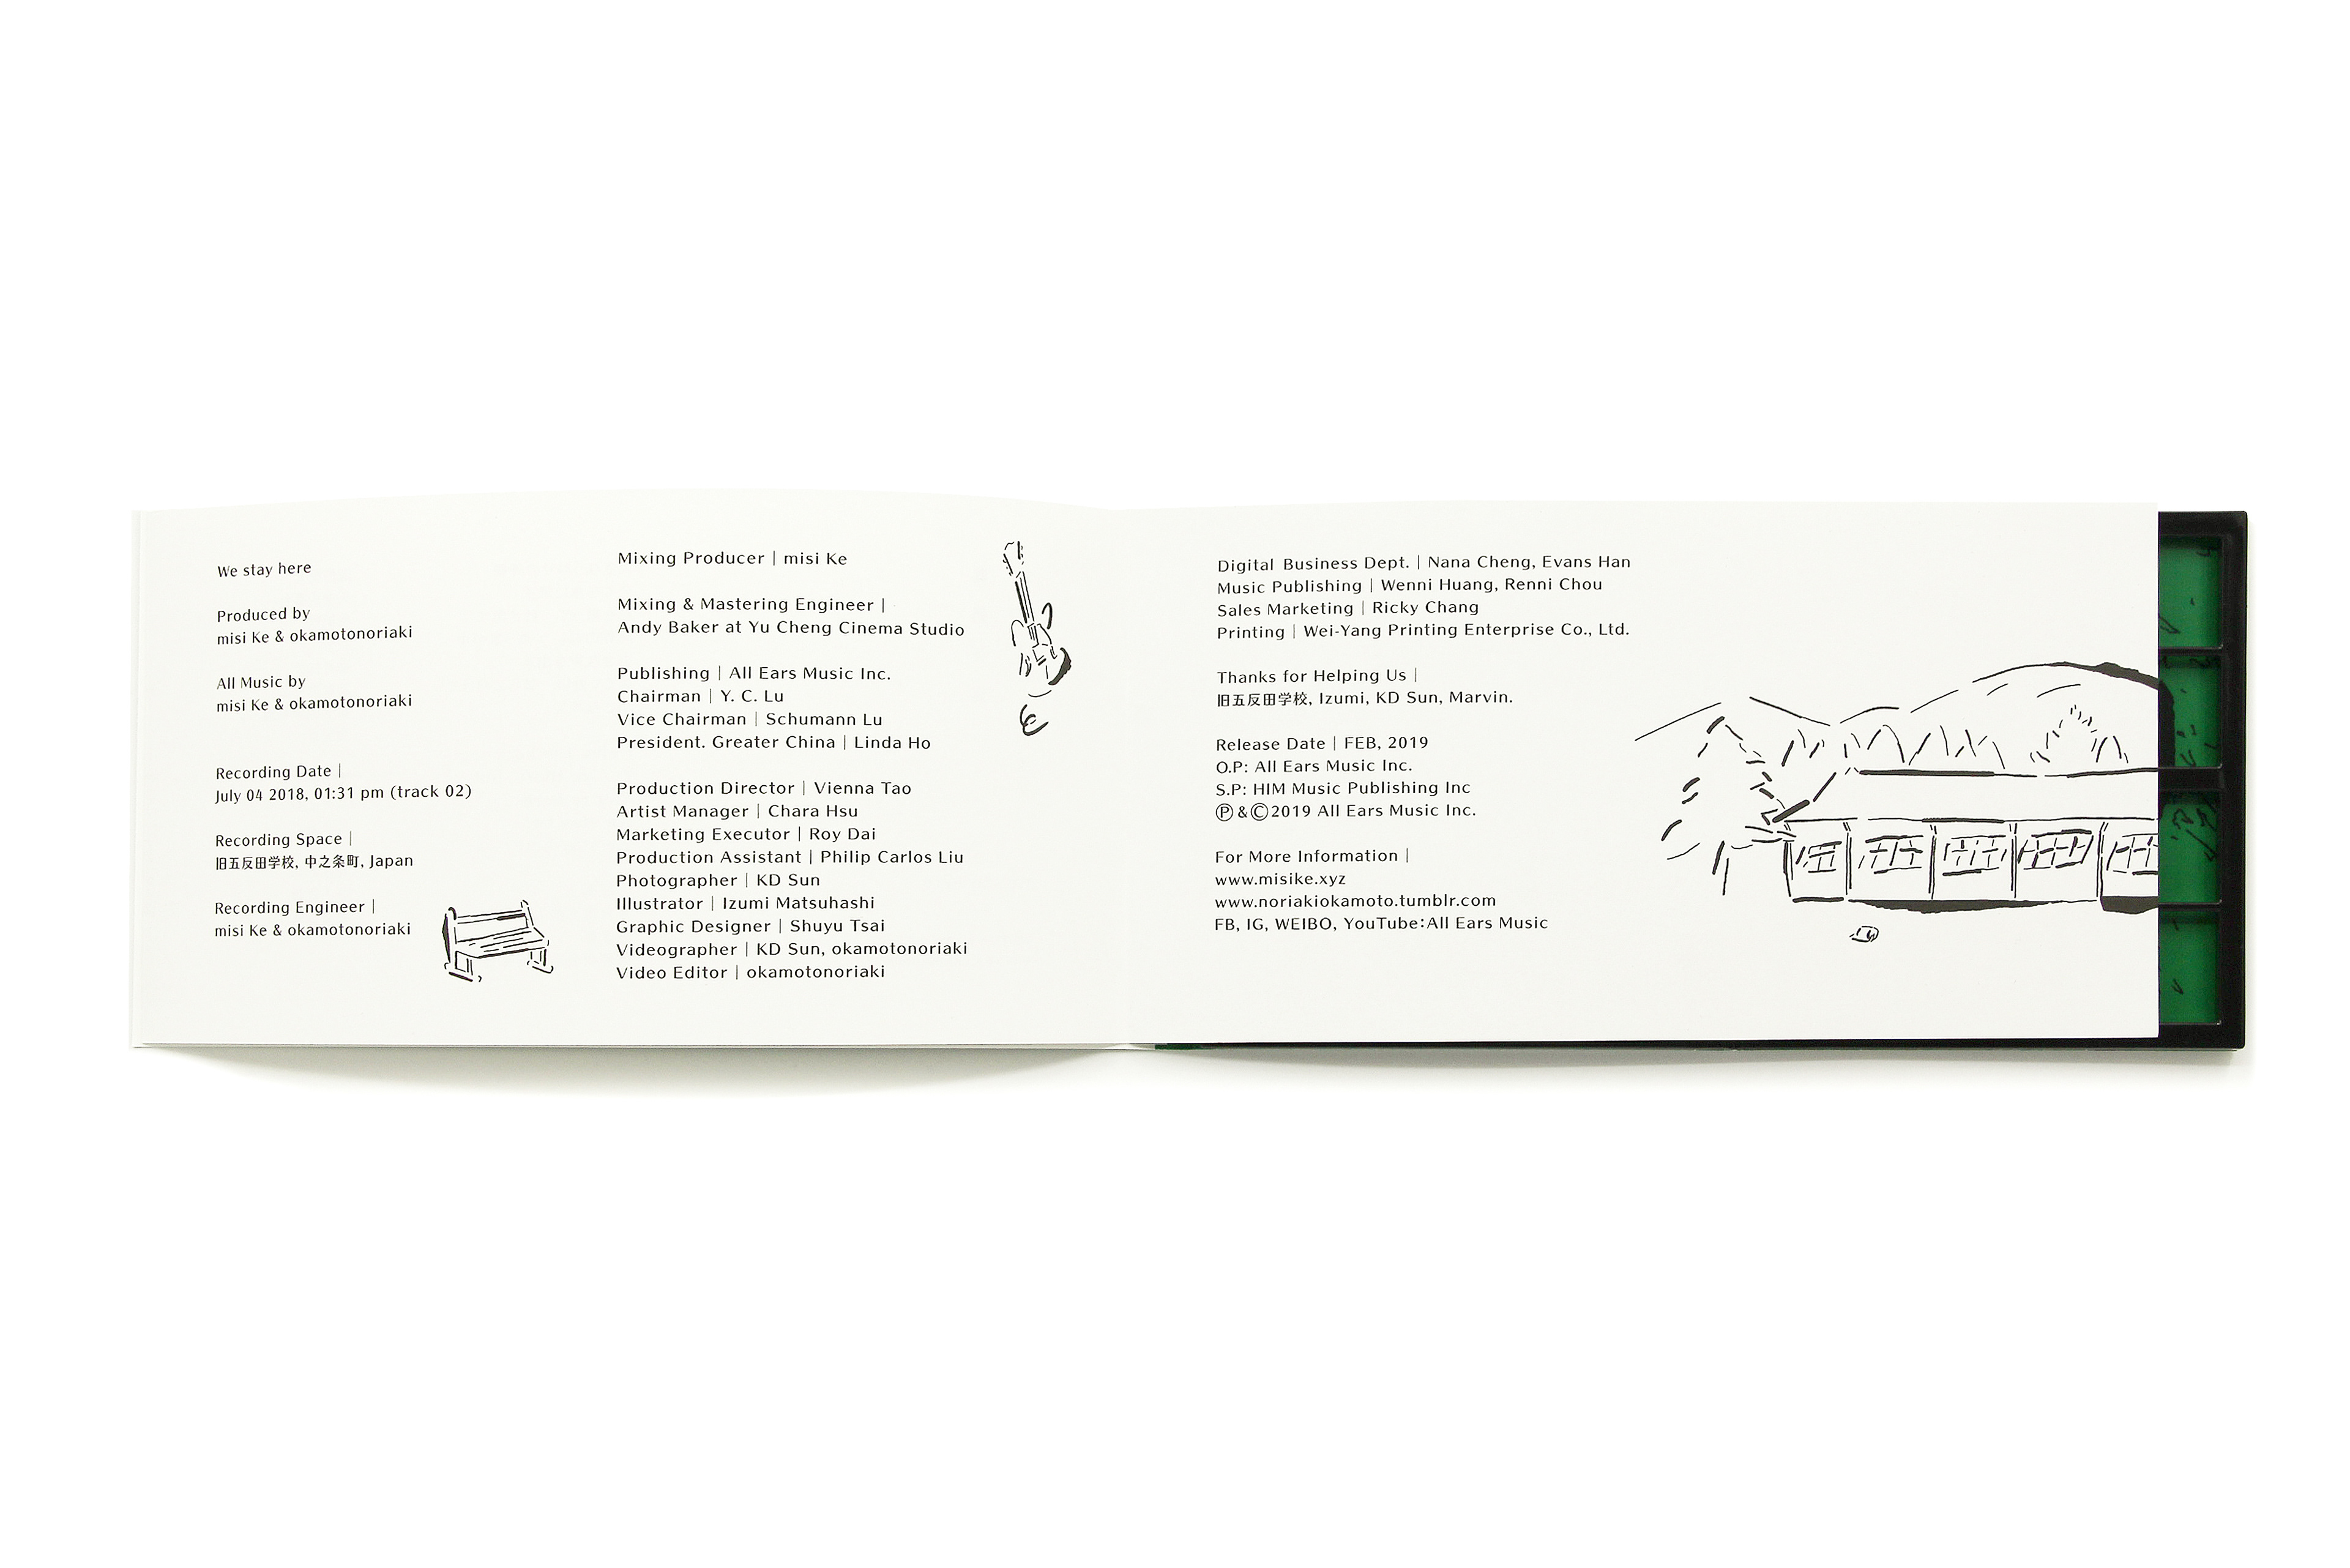 We stay here
Produced by
misi Ke & okamotonoriaki
All Music by
misi Ke & okamotonoriaki
Recording Date |
July 04 2018, 01:31 pm (track 02)
Recording Space |
旧五反田学校, 中之条町, Japan
Recording Engineer |
misi Ke & okamotonoriaki
Mixing Producer | misi Ke
Mixing & Mastering Engineer |
Andy Baker at Yu Cheng Cinema Studio
Publishing | All Ears Music Inc.
Chairman | Y. C. Lu
Vice Chairman | Schumann Lu
President. Greater China | Linda Ho
Production Director | Vienna Tao
Artist Manager | Chara Hsu
Marketing Executor | Roy Dai
Production Assistant | Philip Carlos Liu
Photographer | KD Sun
Illustrator | Izumi Matsuhashi
Graphic Designer | Shuyu Tsai
Videographer | KD Sun, okamotonoriaki
Video Editor | okamotonoriaki
Digital Business Dept. | Nana Cheng, Evans Han
Music Publishing | Wenni Huang, Renni Chou
Sales Marketing | Ricky Chang
Printing | Wei-Yang Printing Enterprise Co., Ltd.
Thanks for Helping Us |
旧五反田学校, Izumi, KD Sun, Marvin.
Release Date | FEB, 2019
O.P: All Ears Music Inc.
S.P: HIM Music Publishing Inc
Ⓟ&Ⓒ2019 All Ears Music Inc.
For More Information |
www.misike.xyz
www.noriakiokamoto.tumblr.com
FB, IG, WEIBO, YouTube:All Ears Music